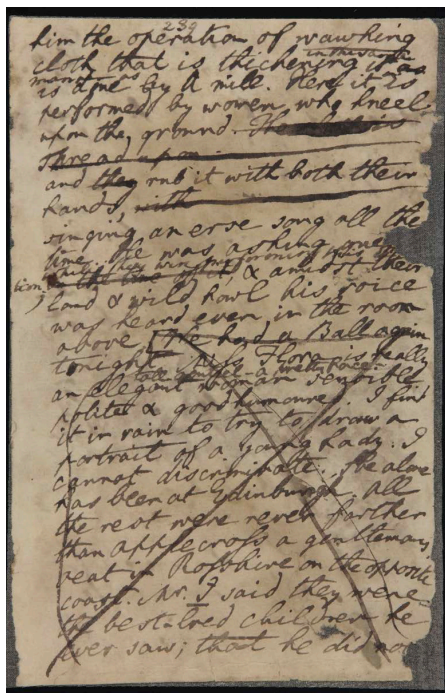 239
him the operation of wawking
cloth that is thickening it in the same
manner as is done by a mill. Here it is
performed by women, who kneel
upon the ground.
spread upon
and they rub it with both their
hands, with
singing an erse song all the
time. He was asking
while they were performing this
in the time of it, & amidst their
loud & wild howl his voice
was heard even in the room
above. We had a Ball again
tonight. Miss Flora is really
tall genteel a pretty face
an elegant woman sensible
polite & good humoured. I find
it in vain to try to draw a
portrait of a young Lady. I
cannot discriminate. She alone
has been at Edinburgh, all
the rest were never farther
than Applecross a gentlemans
seat in Rosshire on the opposite
coast. Mr. J said they were
the best bred children he
ever saw; that he did not